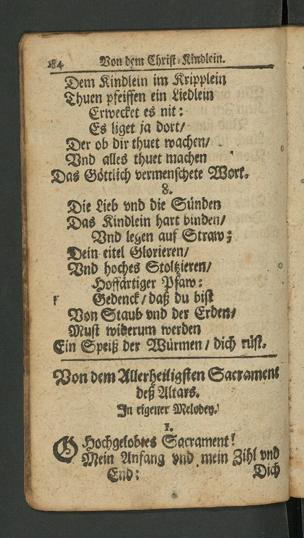 284 Von dem Christ-Kindlein.
Dem Kindlein im Kripplein
Thuen pfeiffen ein Liedlein
Erwecket es nit:
Es liget ja dort/
Der ob dir thuet wachen/
Vnd alles thuet machen
Das Göttlich vermenschete Wort.
8.
Die Lieb vnd die Sünden
Das Kindlein hart binden/
Vnd legen auf Straw;
Dein eitel Glorieren/
Vnd hoches Stoltzieren/
Hoffärtiger Pfaw:
Gedenck/ daß du bist
Von Staub vnd der Erden/
Must widerum werden
Ein Speiß der Würmen/ dich rüst.
Von dem Allerheiligsten Sacrament
deß Altars.
In eigener Melodey.
1.
O Hochgelobtes Sacrament!
Mein Anfang vnd mein Zihl vnd
End: Dich